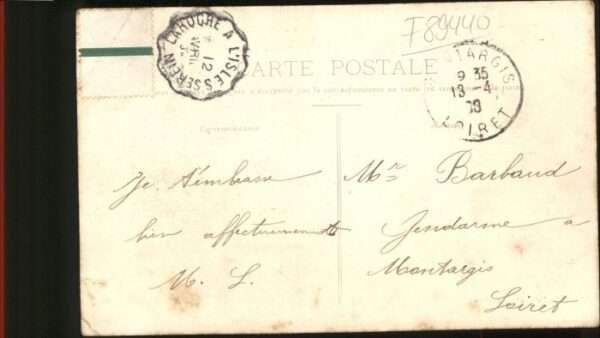 F89440
LAROCHE A L'ISLE S SEREIN
AVRIL
12
CARTE POSTALE
MONTARGIS
9 35
13 - 4
LOIRET
Correspondance
Je t'embrasse
bien affectueusement
M. L.
Mr Barbaud
Gendarme a
Montargis
Loiret